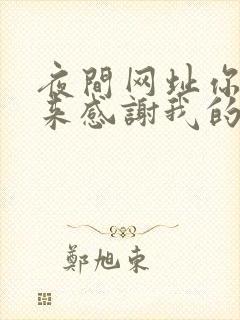 夜間网址你
来感謝我的
鄭旭东